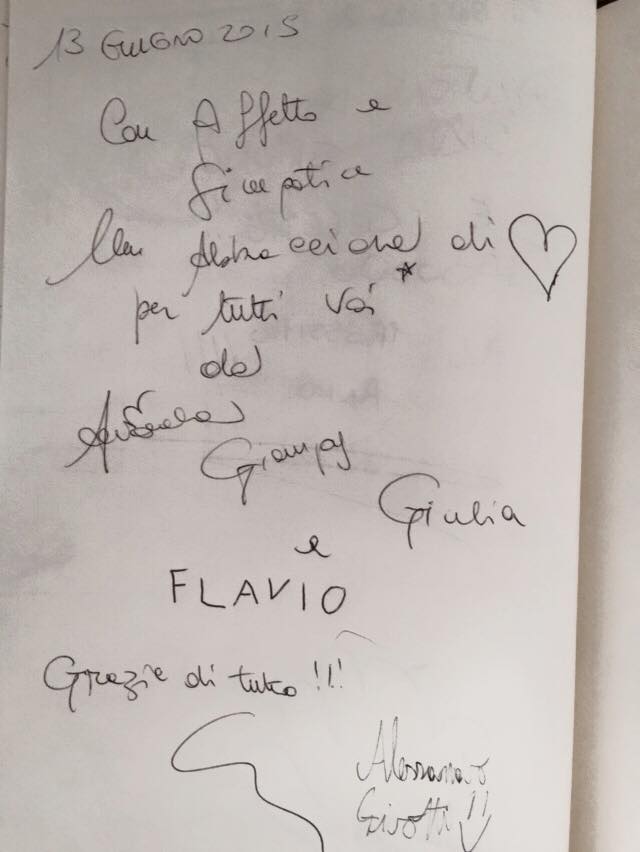 13 GIUGNO 2015
Con Affetto e
Simpatia
Un Abbraccione di
per tutti Voi
da
Giampy
Giulia
e
FLAVIO
Grazie di tutto !!!
Alessandro